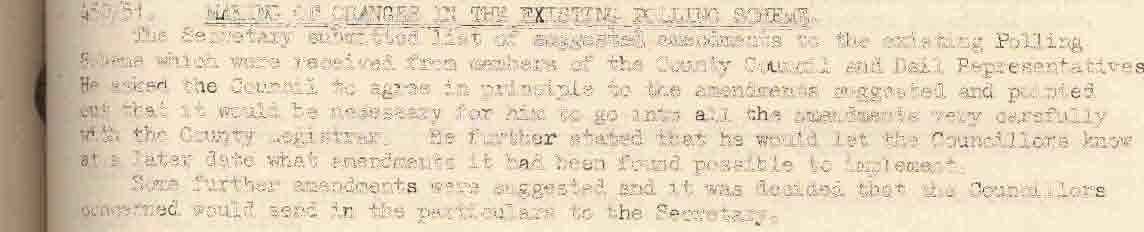 450/51. MAKING OF CHANGES IN THE EXISTING POLLING SCHEME.
The Secretary submitted list of suggested amendments to the existing Polling
Scheme which were received from members of the County Council and Dail Representatives
He asked the Council to agree in principle to the amendments suggested and pointed
out that it would be necessary for him to go into all the amendments very carefully
with the County Registrar. He further stated that he would let the Councillors know
at a later date what amendments it had been found possible to implement.
Some further amendments were suggested and it was decided that the Councillors
concerned would send in the particulars to the Secretary.